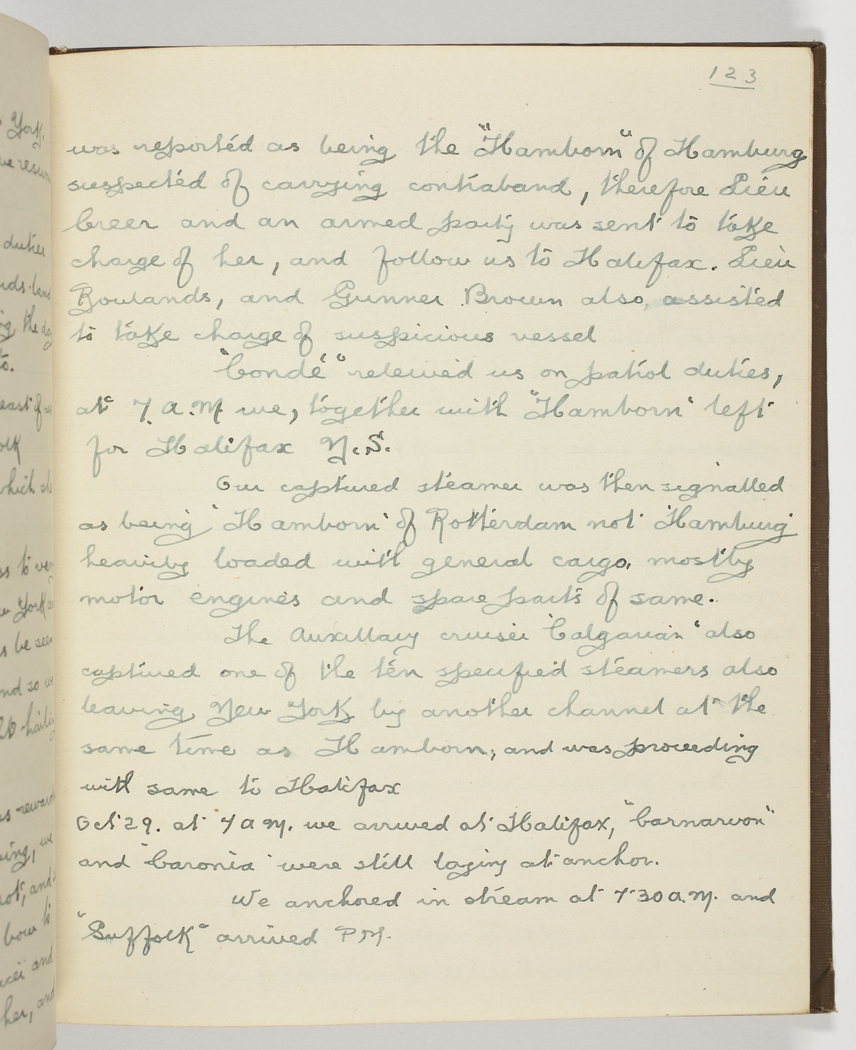 123
was reported as being the "Hamborn" of Hamburg
suspected of carrying contraband, therefore Lieu
Creer and an armed party was sent to take
charge of her, and follow us to Halifax. Lieu
Rowlands, and Gunner Brown also, assisted
to take charge of suspicious vessel
"Condé" releived us on patrol duties,
at 7 a.m we, together with "Hamborn" left
for Halifax N.S.
Our captured steamer was then signalled
as being "Hamborn" of Rotterdam not Hamburg
heavily loaded with general cargo, mostly
motor engines and spare parts of same.
The Auxillary cruiser "Calgarian" also
captured one of the ten specified steamers also
leaving New York by another channel at the
same time as Hamborn, and was proceeding
with same to Halifax
Oct 29. at 7 a m. we arrived at Halifax, "Carnarvon"
and "Caronia" were still laying at anchor.
We anchored in stream at 7.30 a.m. and
"Suffolk" arrived P.M.
York.
duties
the
to.
east of
which
to
York
be
and so
and
bow to
and
her, and